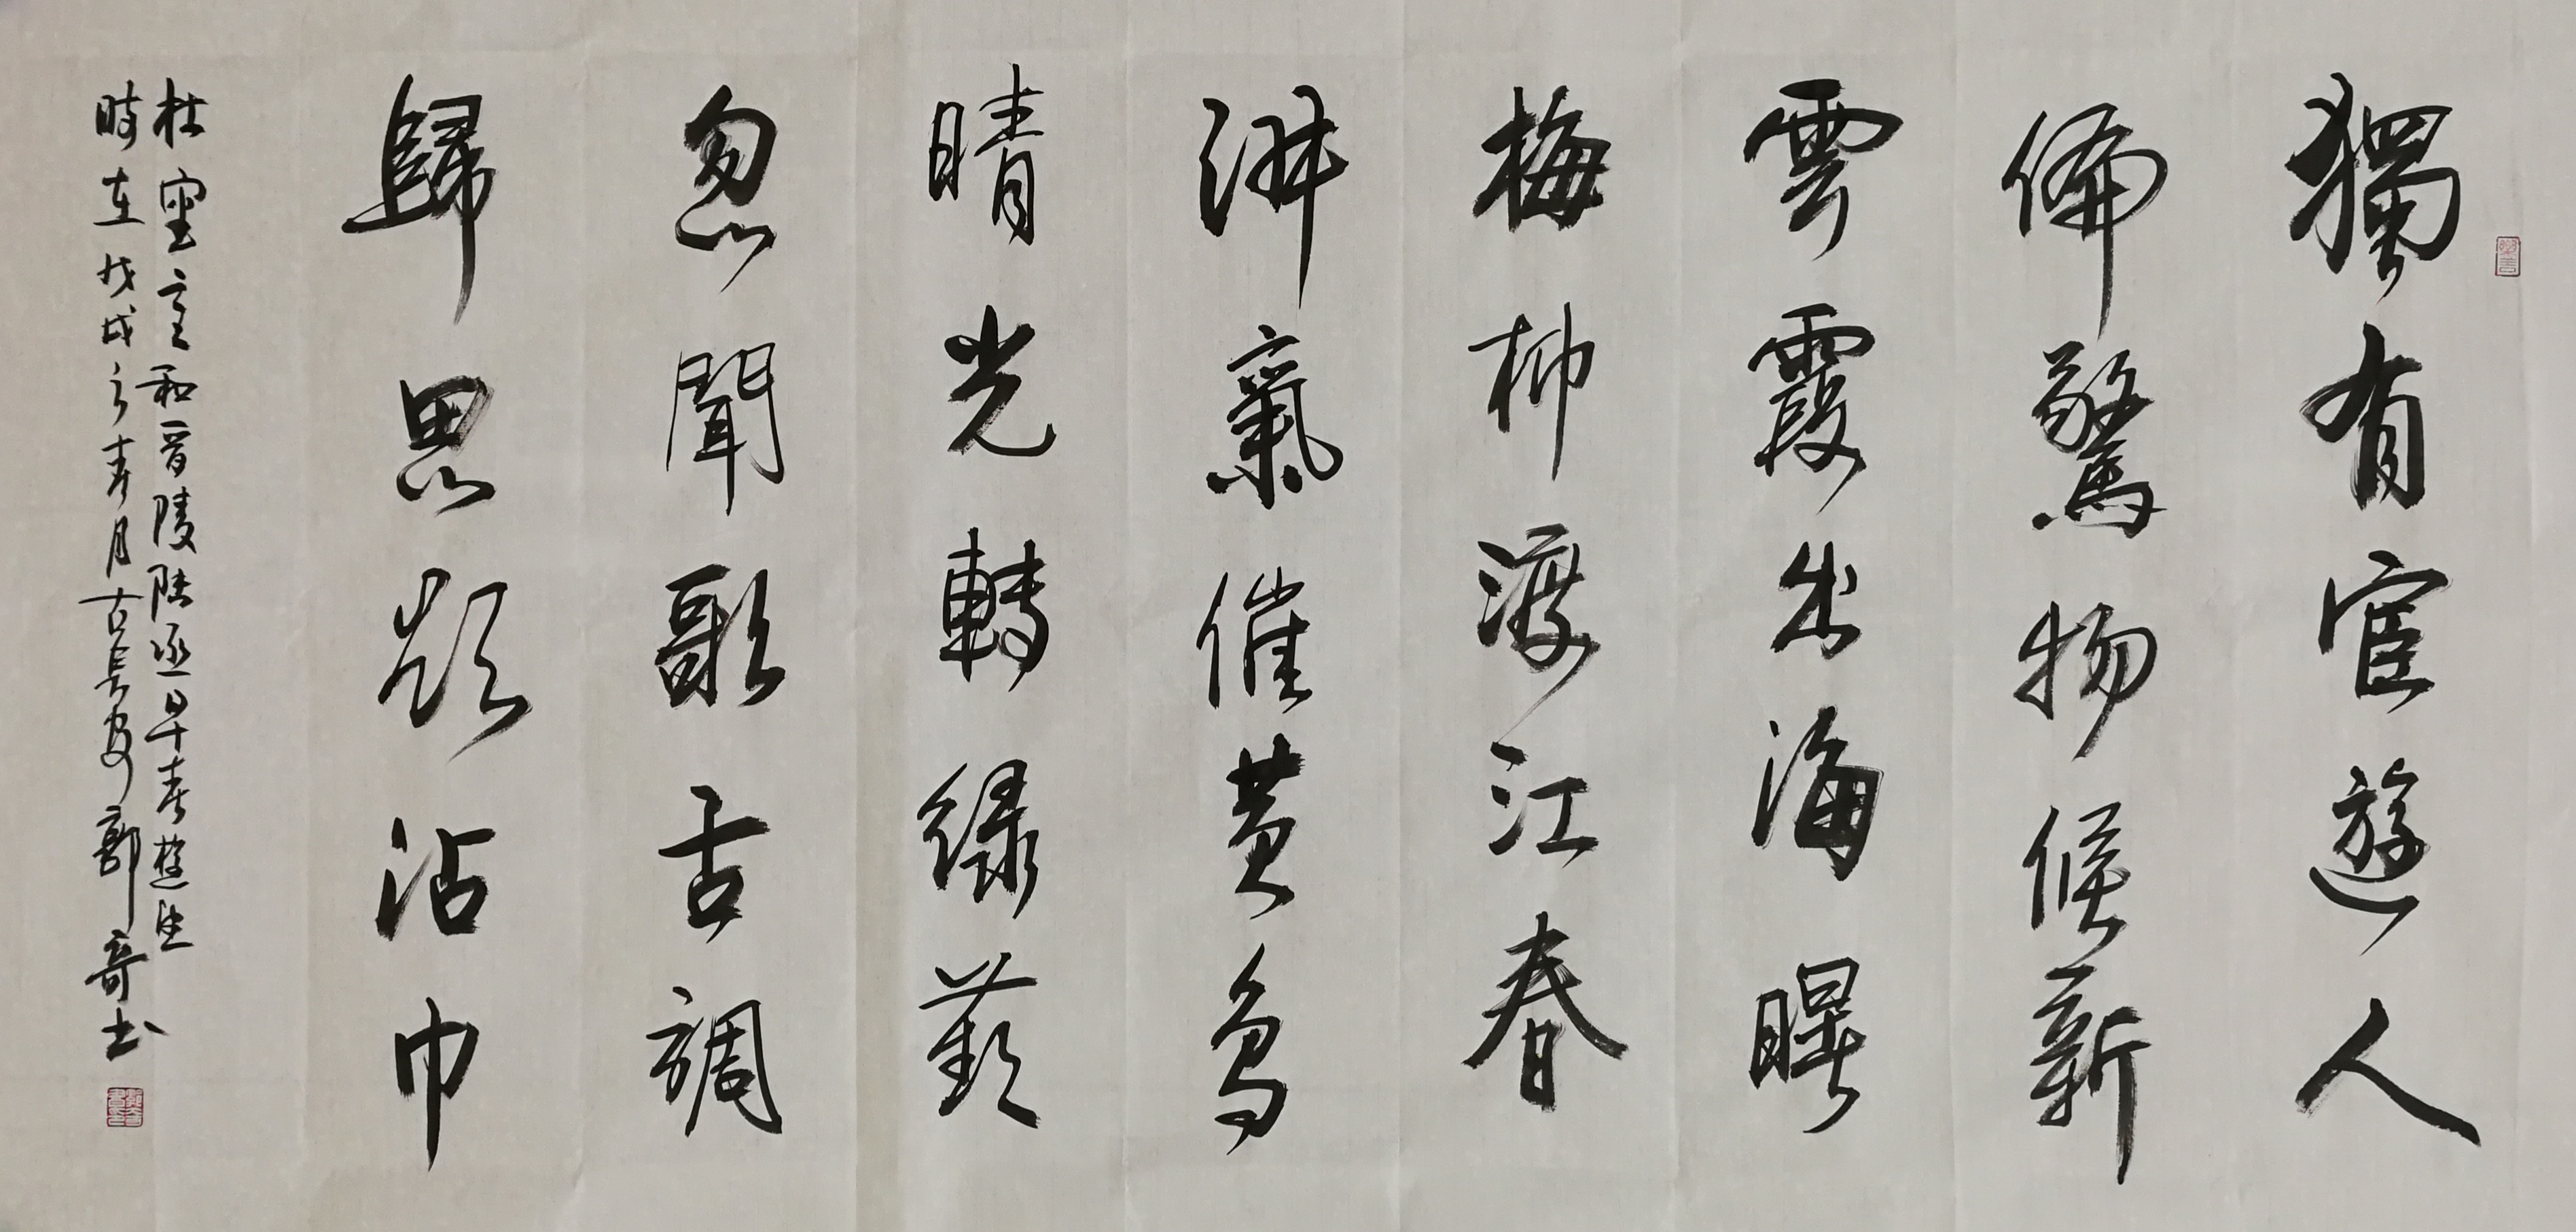 獨有宦遊人
偏驚物候新
雲霞出海曙
梅柳渡江春
淑氣催黃鳥
晴光轉緑蘋
忽聞歌古調
歸思欲沾巾
杜審言和晉陵陸丞早春遊望
時在戊戌之春月古長安郭奇书